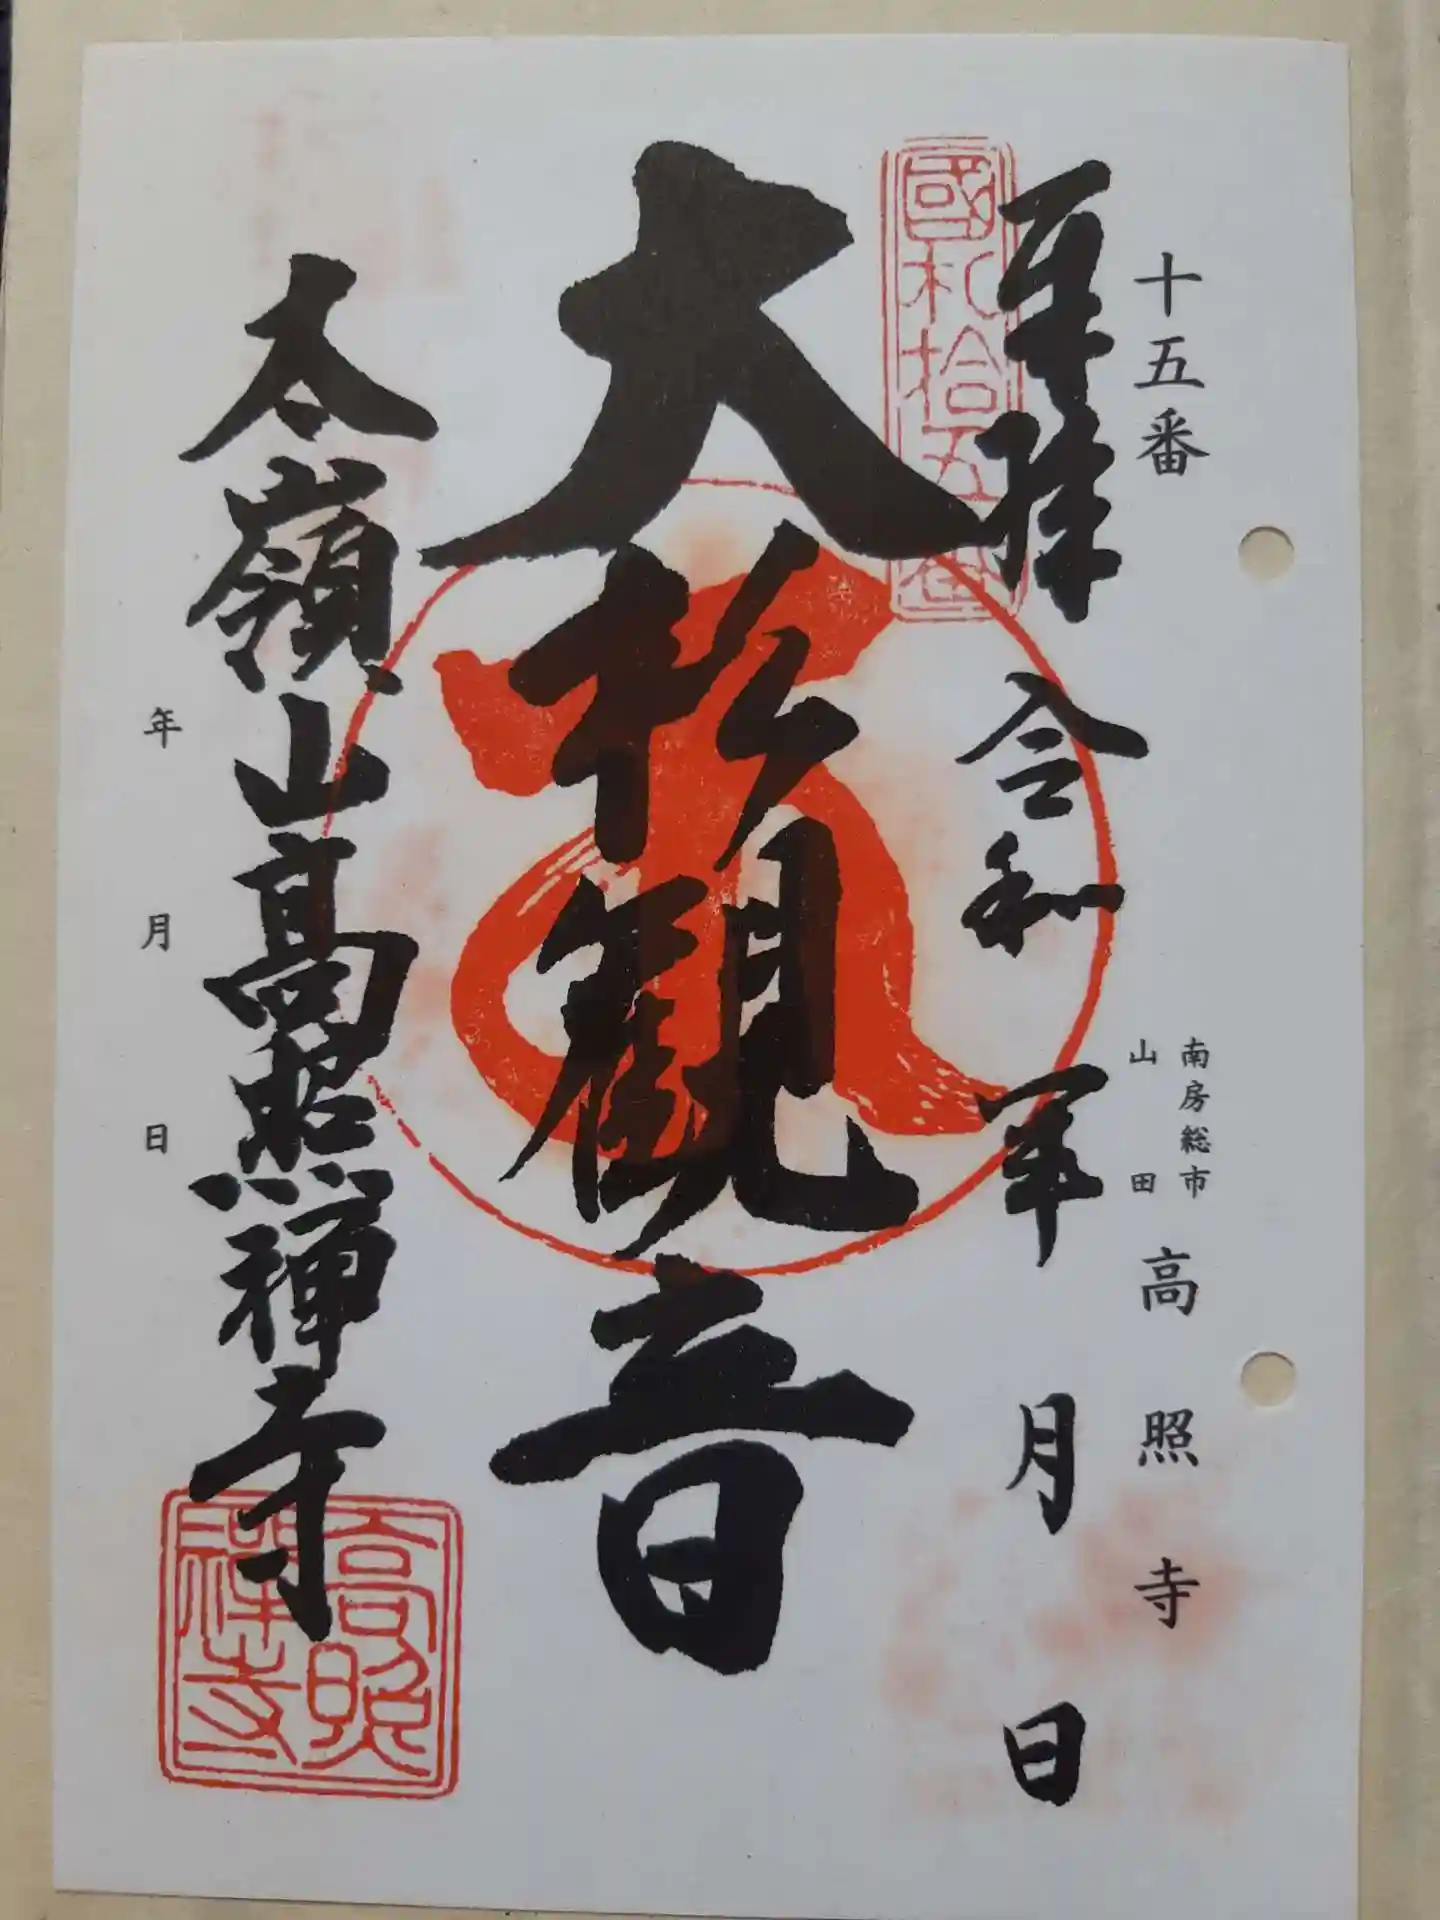 十五番
南房総市
山田
高照寺
奉拝 令和 年 月 日
國札拾五番
大松観音
太嶺山高照禅寺
高照
禅寺
年 月 日